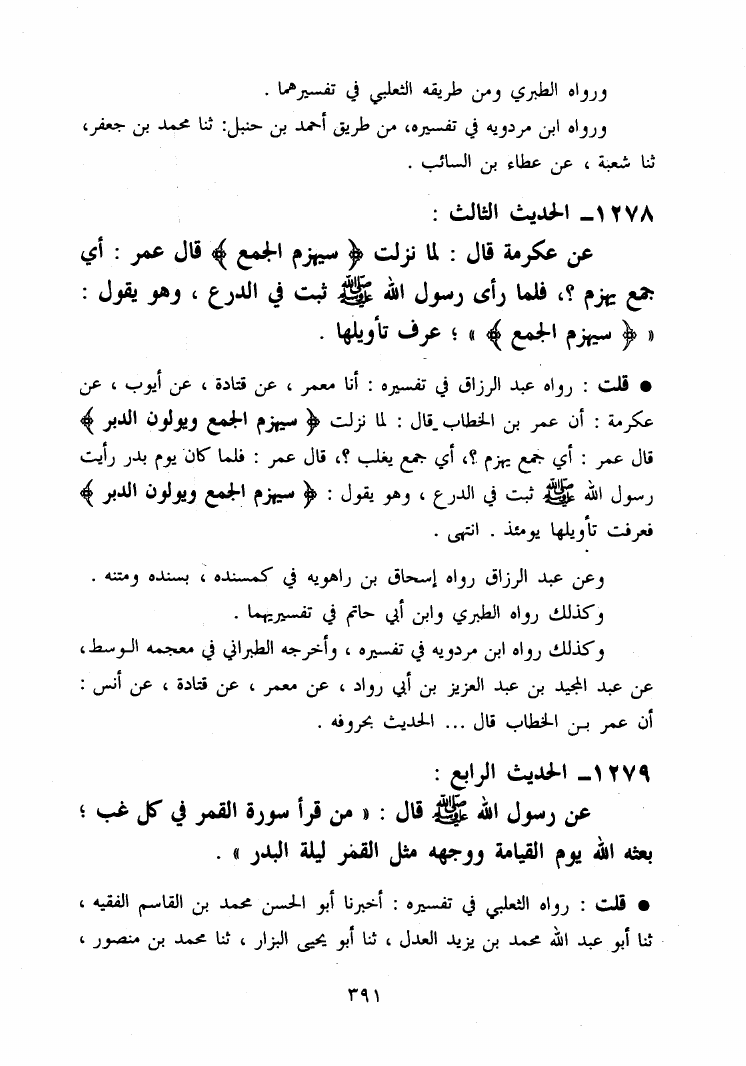 ورواه الطبري ومن طريقه الثعلبي في تفسيرهما .
ورواه ابن مردويه في تفسيره، من طريق أحمد بن حنبل: ثنا محمد بن جعفر،
ثنا شعبة ، عن عطاء بن السائب .
١٢٧٨ـ الحديث الثالث :
عن عكرمة قال : لما نزلت ﴿ سيهزم الجمع ﴾ قال عمر : أي
جمع يهزم ؟، فلما رأى رسول الله ﷺ ثبت في الدرع ، وهو يقول :
« ﴿ سيهزم الجمع ﴾ » ؛ عرف تأويلها .
● قلت : رواه عبد الرزاق في تفسيره : أنا معمر ، عن قتادة ، عن أيوب ، عن
عكرمة : أن عمر بن الخطاب قال : لما نزلت ﴿ سيهزم الجمع ويولون الدبر ﴾
قال عمر : أي جمع يهزم ؟، أي جمع يغلب ؟، قال عمر : فلما كان يوم بدر رأيت
رسول الله ﷺ ثبت في الدرع ، وهو يقول : ﴿ سيهزم الجمع ويولون الدبر ﴾
فعرفت تأويلها يومئذ . انتهى .
وعن عبد الرزاق رواه إسحاق بن راهويه في كمسنده ، بسنده ومتنه .
وكذلك رواه الطبري وابن أبي حاتم في تفسيريهما .
وكذلك رواه ابن مردويه في تفسيره ، وأخرجه الطبراني في معجمه الوسط،
عن عبد المجيد بن عبد العزيز بن أبي رواد ، عن معمر ، عن قتادة ، عن أنس :
أن عمر بن الخطاب قال ... الحديث بحروفه .
١٢٧٩ـ الحديث الرابع :
عن رسول الله ﷺ قال : « من قرأ سورة القمر في كل غب ؛
بعثه الله يوم القيامة ووجهه مثل القمر ليلة البدر » .
● قلت : رواه الثعلبي في تفسيره : أخبرنا أبو الحسن محمد بن القاسم الفقيه ،
ثنا أبو عبد الله محمد بن يزيد العدل ، ثنا أبو يحيى البزار ، ثنا محمد بن منصور ،
٣٩١